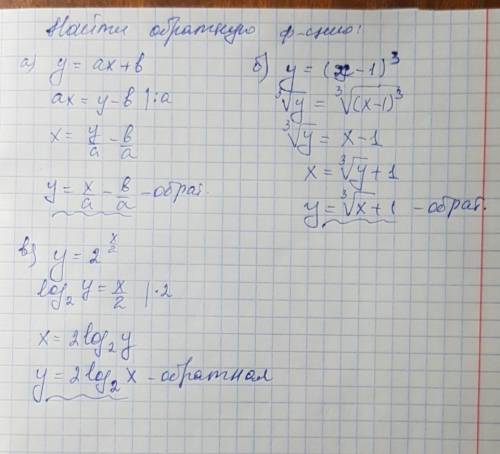 Найти обратную ф-цию:
а) y = ax + в
ax = y - в |:a
x = y/a - в/a
y = x/a - в/a - обрат.
б) y = (x - 1)³
³√y = ³√(x-1)³
³√y = x - 1
x = ³√y + 1
y = ³√x + 1 - обрат.
в) y = 2^(x/2)
log₂ y = x/2 |·2
x = 2 log₂ y
y = 2 log₂ x - обратная